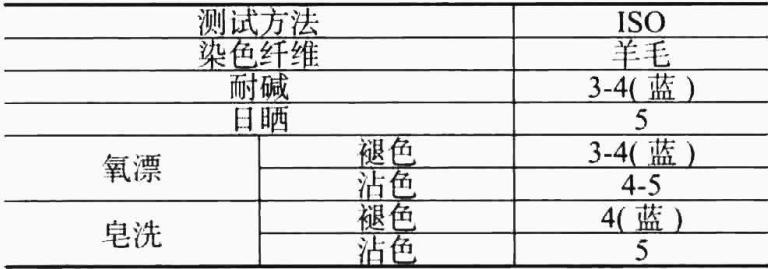 测试方法 ISO
染色纤维 羊毛
耐碱 3-4(蓝)
日晒 5
氧漂 褪色 3-4(蓝)
沾色 4-5
皂洗 褪色 4(蓝)
沾色 5